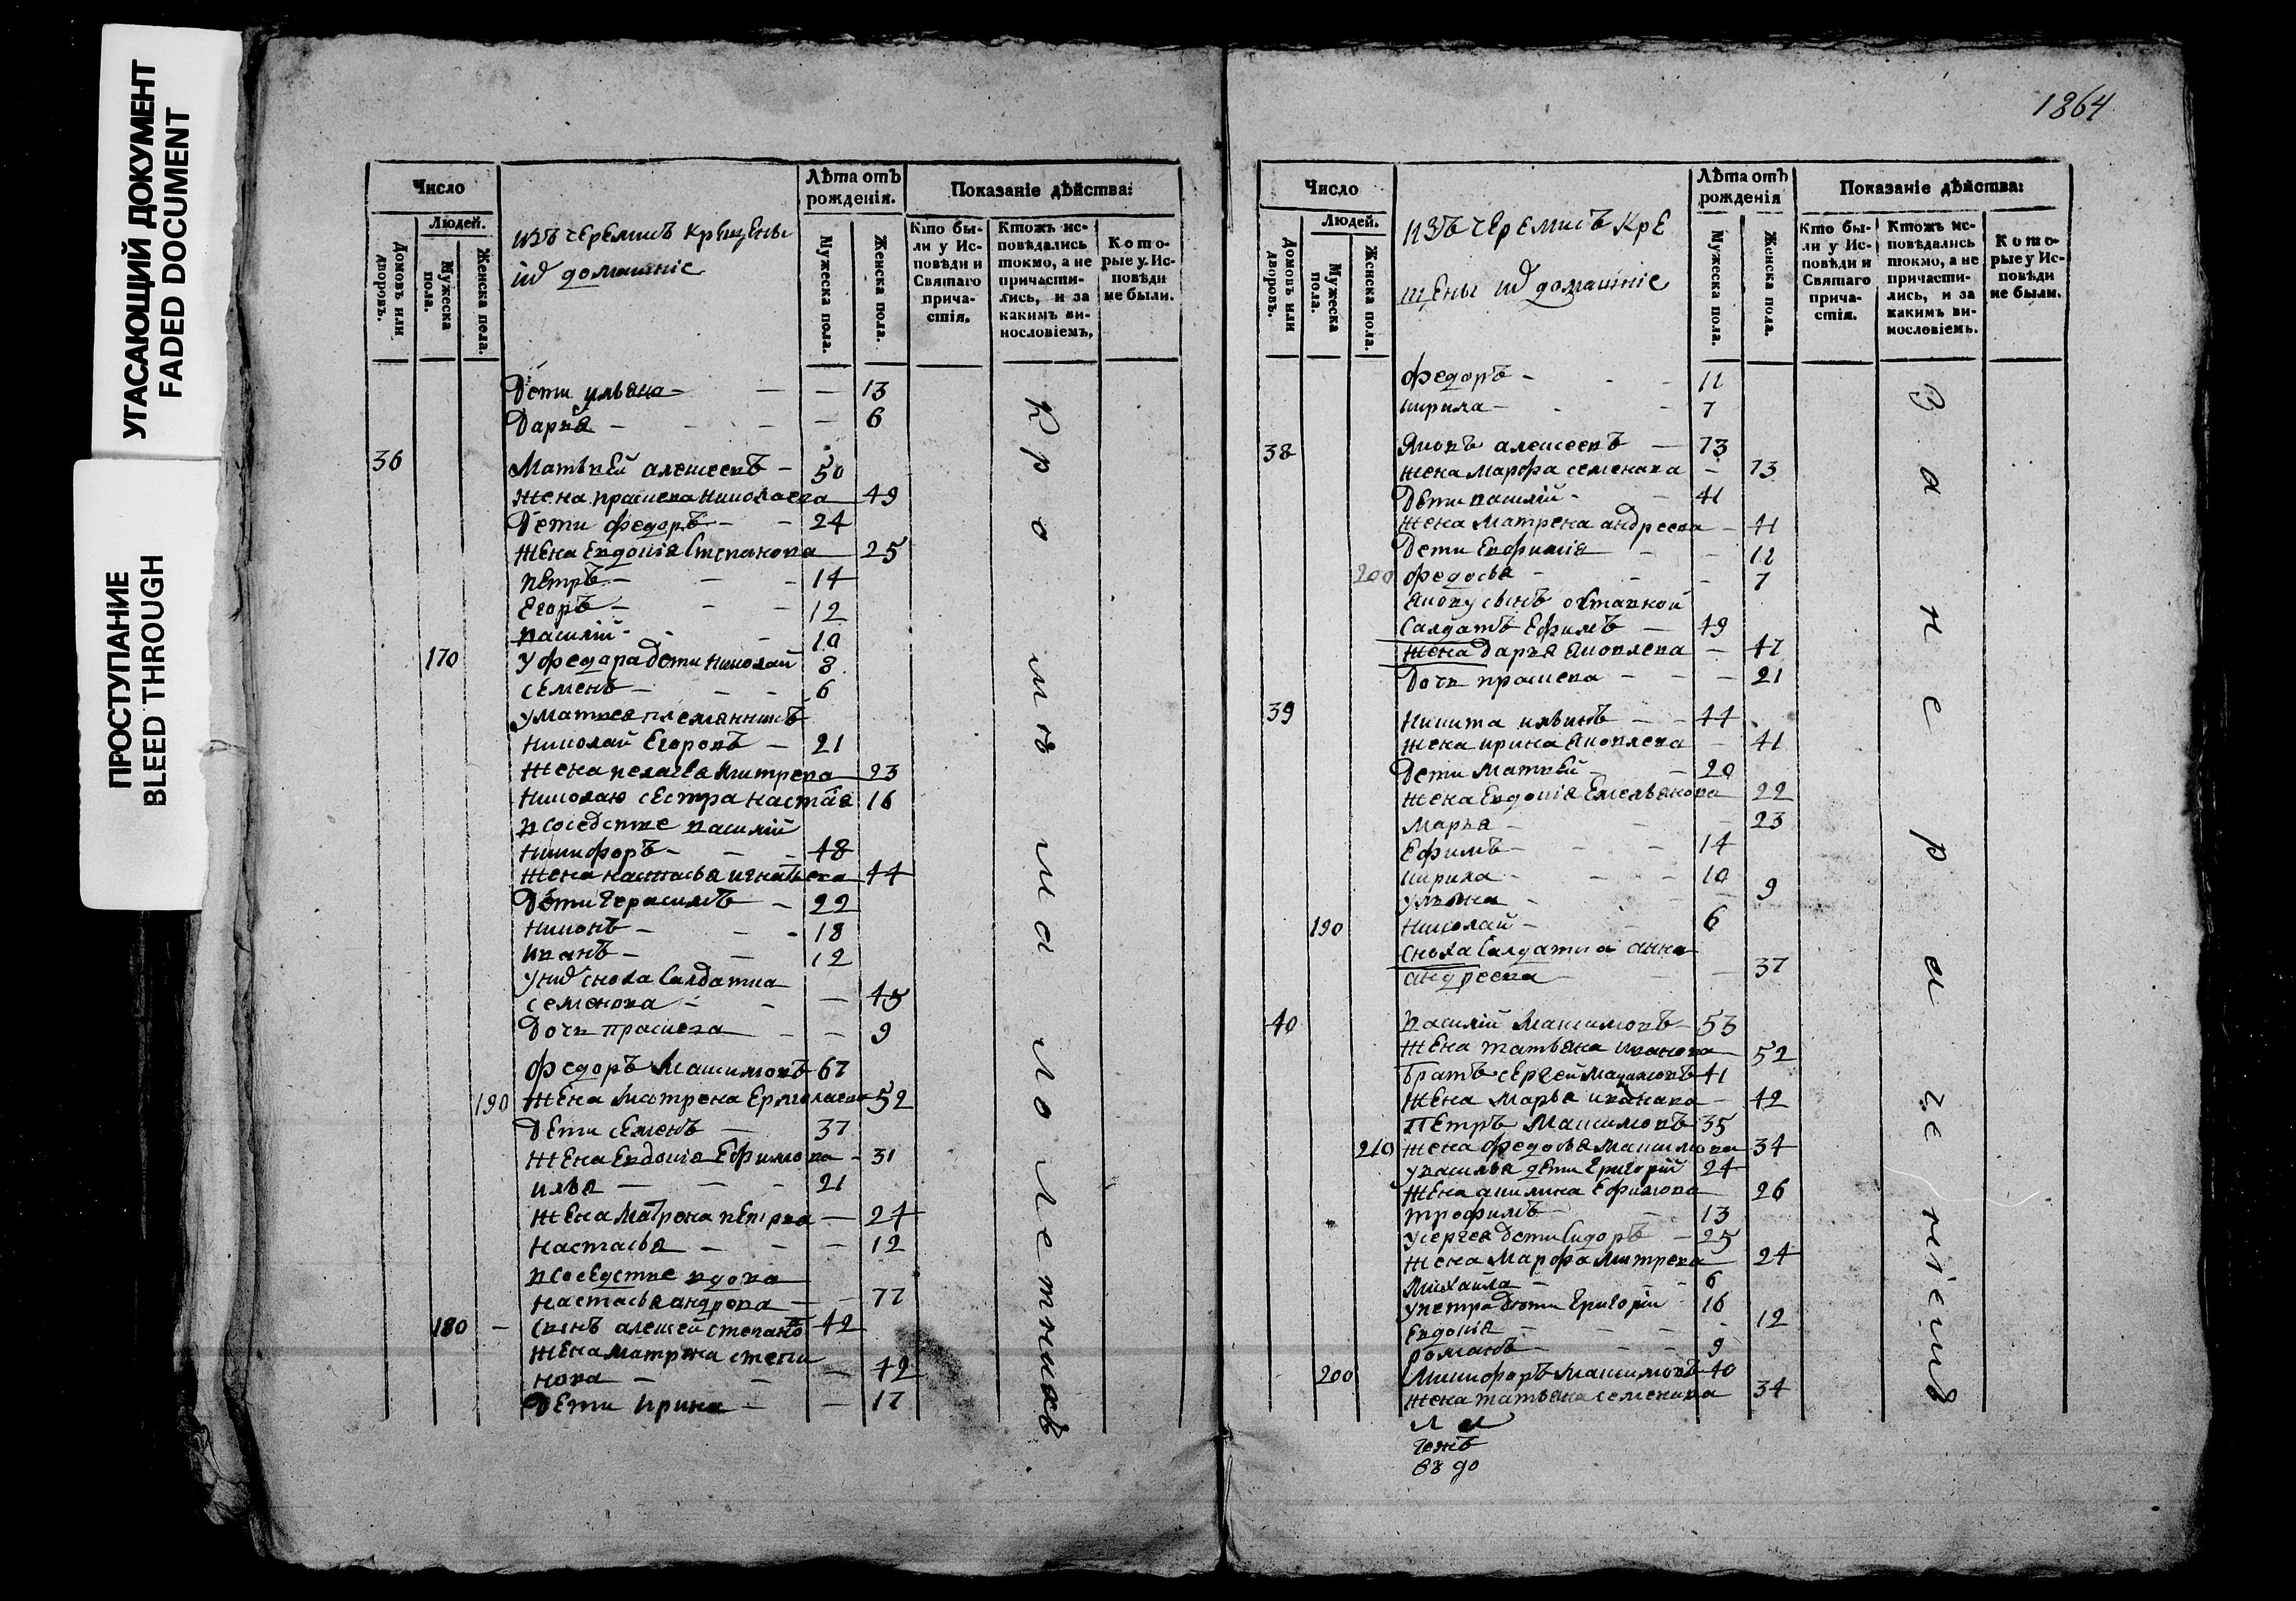 УГАСАЮЩИЙ ДОКУМЕНТ
FADED DOCUMENT
ПРОСТУПАНИЕ
BLEED THROUGH
Число
Людей.
Домовъ или дворовъ.
Мужеска пола.
Женска пола.
изъ черемисъ крещены
ихъ домашніе
Лѣта отъ рожденія.
Мужеска пола.
Женска пола.
Показаніе дѣйства:
Кто были у Исповѣди и Святаго причастія.
Ктожъ исповѣдались токмо, а не причастились, и за какимъ винословіемъ.
Которые у Исповѣди не были.
Дети ульяна — — — 13
Дарья — — — 6
36 Матвей алексеевъ — 50
жена прасковa николаева 49
Дети федоръ — — 24
жена Евдокія Степанова 25
петръ — — 14
Егоръ — — 12
василій — — 10
170 у федора дети николай 8
семенъ — — 6
у матвея племянникъ
николай Егоровъ — 21
жена пелагея дмитрева 23
николаю сестра настася 16
в соседстве василій
никифоръ — — 48
жена настасья игнатьева 44
Дети Герасимъ — 22
никонъ — — 18
иванъ — — 12
у них сноха Салдатка
семенова — — 45
Дочь прасковa — — 9
федоръ Максимовъ 67
190 жена Матрена Ермолаева 52
Дети семенъ — 37
жена Евдокія Ефимова — 31
илья — — 21
жена Матрона петрова — 24
настасья — — — 12
в соседстве вдова
настасья андрева — — 77
180 — сынъ алексей степановъ 42
жена матрена степа
нова — — 42
Дети Ирина — — 17
Кромѣ малолетнихъ
1864
Число
Людей.
Домовъ или дворовъ.
Мужеска пола.
Женска пола.
изъ черемисъ кре
щены ихъ домашніе
Лѣта отъ рожденія
Мужеска пола.
Женска пола.
Показаніе дѣйства:
Кто были у Исповѣди и Святаго причастія.
Ктожъ исповѣдались токмо, а не причастились, и за какимъ винословіемъ.
Которые у Исповѣди не были.
федоръ — — 11
кирила — — 7
38 Яковъ алексеевъ — 73
жена Марфа семенова — 73
Дети василій — — 41
жена Матрена андреева — 41
Дети Евфимія — — 12
200 федосья — — 7
якову сынъ отставной
Салдатъ Ефимъ — 49
жена Дарья яковлева — 47
Дочь прасковa — — 21
39 никита ильинъ — — 44
жена ирина яковлева — 41
Дети матвей — — 20
жена Евдокія Емельянова 22
Марья — — 23
Ефимъ — — 14
кирила — — 10
ульяна — — 9
190 николай — — 6
сноха Салдатка анна
андреева — — 37
40 василій Максимовъ — 53
жена татьяна иванова — 52
братъ сергей Максимовъ 41
жена Марья иванова — 42
Петръ Максимовъ 35
210 жена федосья Максимова 34
у василья дети Григорій 24
жена акилина Ефимова 26
трофимъ — — 13
у сергея дети Сидоръ — 25
жена Марфа Митрева 24
Михаила — — 6
у петра дети Григорій 16
Евдокія — — — 12
романъ — — 9
200 Никифоръ Максимовъ 40
жена татьяна семенова 34
За нераченіемъ